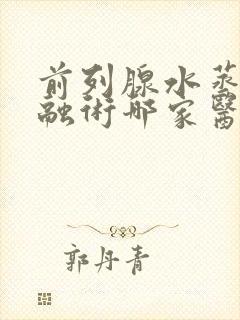 前列腺水蒸
融術哪家醫
郭丹青